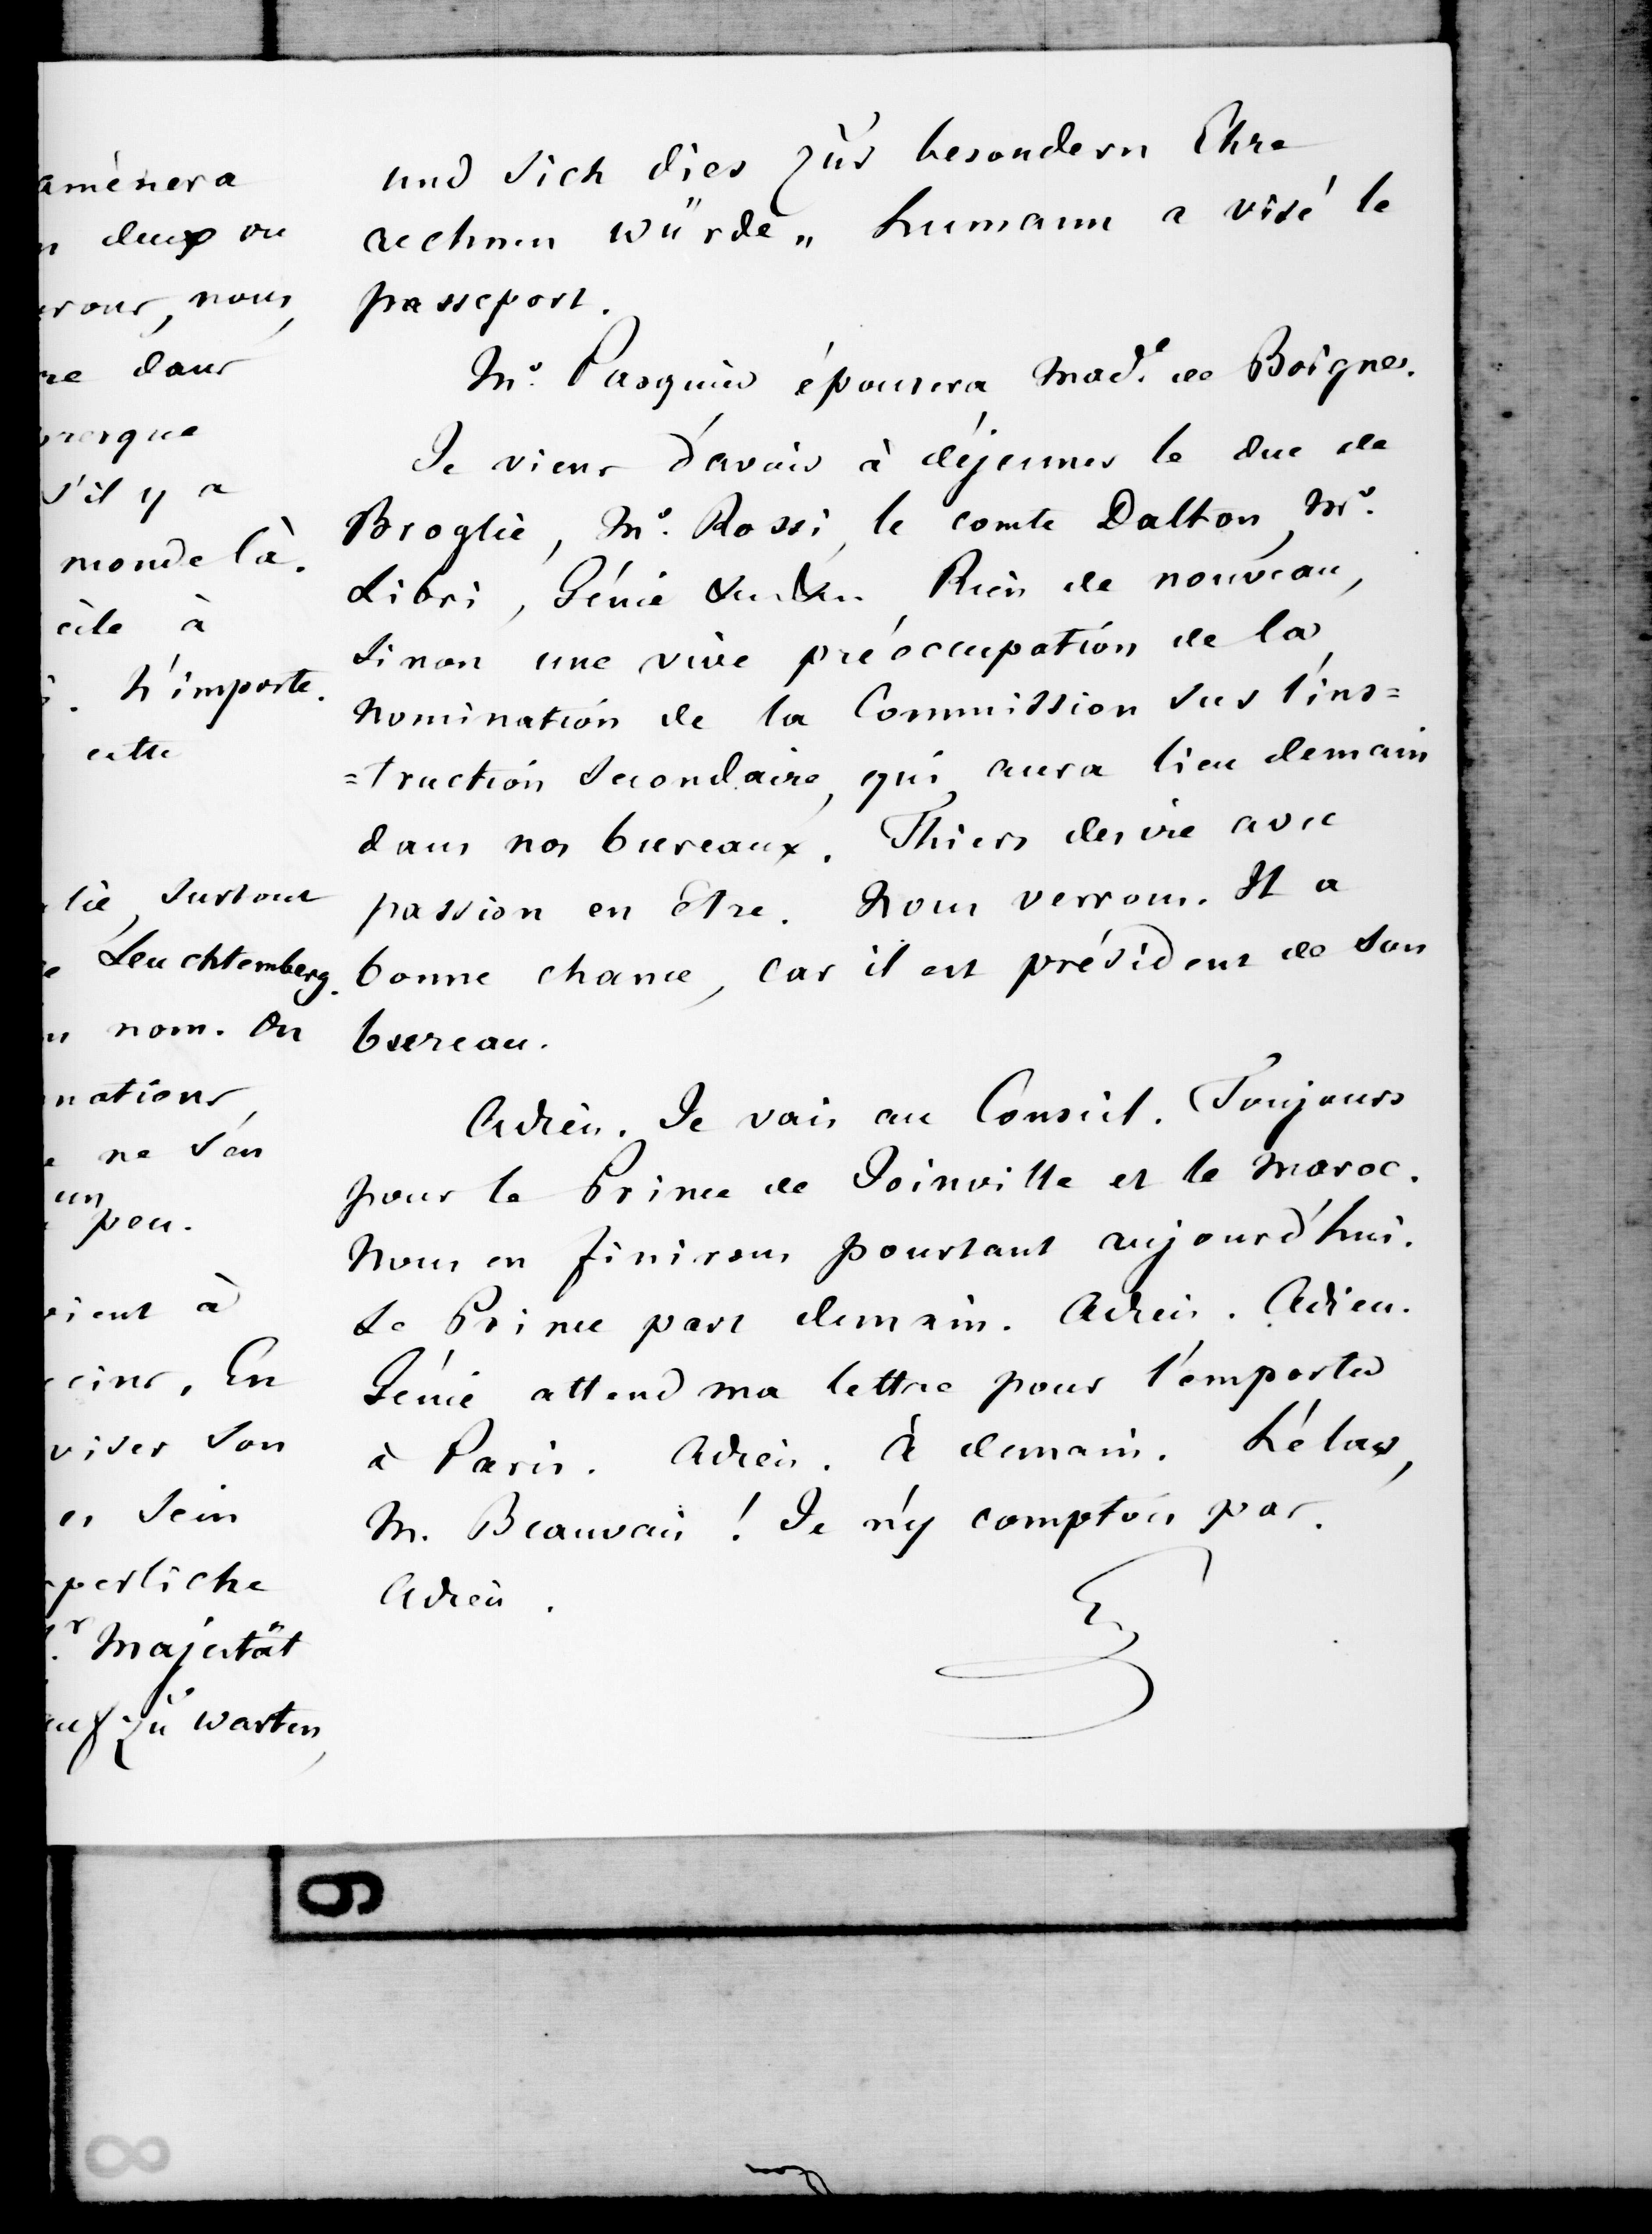 amènera
deux ou
nous,
dans
presque
s'il y a
monde là.
à
. N'importe.
cette
surtout
Leuchtemberg.
nom. On
nations,
ne s'en
un
peu.
vient à
En
viser son
es sein
perliche
Majestät
auf zu warten,
und sich dies zür besondern Ehre
rechnen würde„ humann a visé le
passeport.
Mr. Pasquier épousera Made. de Boignes.
Je viens d'avoir à déjeuner le duc de
Broglie, Mr. Rossi, le comte Dalton, Mr.
Libri, Génie Rien de nouveau,
sinon une vive préoccupation de la
nomination de la Commission sur l'ins=
=truction secondaire, qui aura lieu demain
dans nos bureaux. Thiers desire avec
passion en être. Nous verrons. Il a
bonne chance, car il est président de son
bureau.
Adieu. Je vais au Conseil. Toujours
pour le Prince de Joinville et le Maroc.
Nous en finirons pourtant aujourd'hui.
Le Prince part demain. Adieu. Adieu.
Génie attend ma lettre pour l'emporter
à Paris. Adieu. à demain. hélas,
M. Beauvais ! Je n'y comptois pas.
Adieu.
9
8